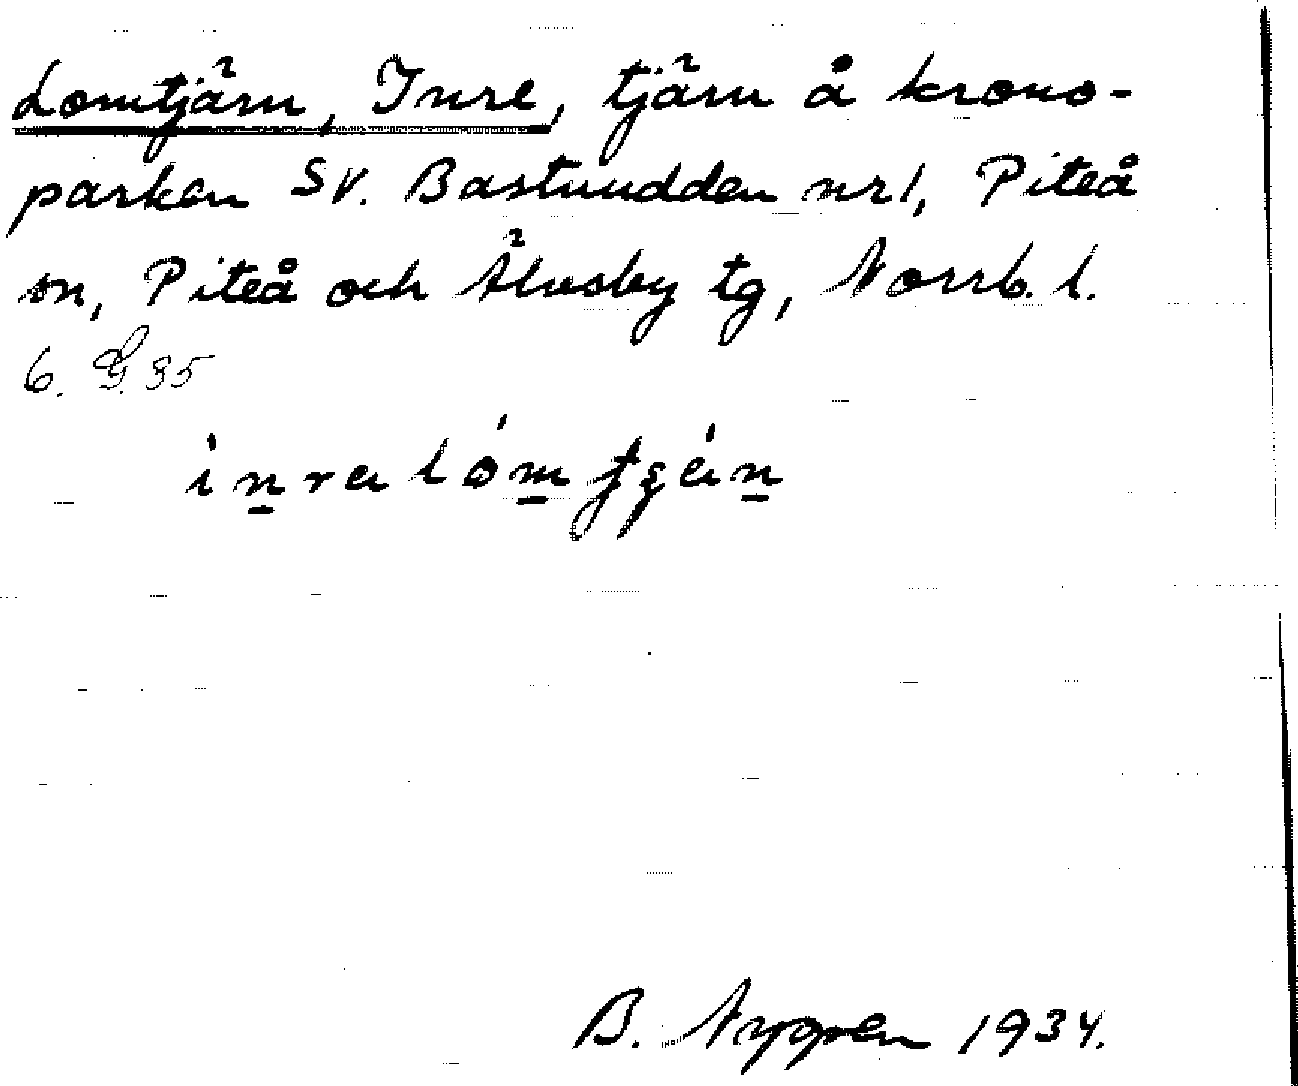 Lomtjärn, Inre, tjärn å krono-
parken SV. Bastuudden nr 1, Piteå
sn, Piteå och Älvsby tg, Norrb. l.
6. G. 35
B. Nygren 1934.